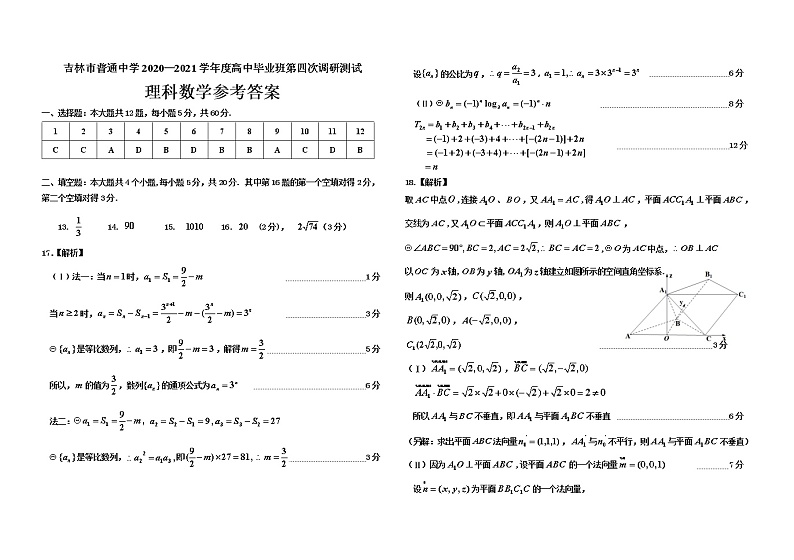 吉林市普通中学2020—2021学年度高中毕业班第四次调研测试
理科数学参考答案
一、选择题：本大题共12题，每小题5分，共60分．
1 2 3 4 5 6 7 8 9 10 11 12
C C A D B D B B A C D B
二、填空题：本大题共4个小题,每小题5分，共20分．其中第16题的第一个空填对得2分，
第二个空填对得3分．
13. 1/3 14. 90 15. 1010 16. 20 (2分)， 2√74 (3分)
17.【解析】
(Ⅰ)法一：当n=1时，a₁=S₁=9/2−m ……1分
当n≥2时，aₙ=Sₙ−Sₙ₋₁=3ⁿ⁺¹/2−m−(3ⁿ/2−m)=3ⁿ ……3分
☺{aₙ}是等比数列，∴a₁=3，即9/2−m=3，解得m=3/2 ……5分
所以，m的值为3/2，数列{aₙ}的通项公式为aₙ=3ⁿ ……6分
法二：☺a₁=S₁=9/2−m，a₂=S₂−S₁=9，a₃=S₃−S₂=27
☺{aₙ}是等比数列，∴a₂²=a₁a₃,即(9/2−m)×27=81，∴m=3/2 ……3分
设{aₙ}的公比为q，∴q=a₂/a₁=3，a₁=1,∴aₙ=3×3ⁿ⁻¹=3ⁿ ……6分
(Ⅱ)☺bₙ=(−1)ⁿlog₃aₙ=(−1)ⁿ·n ……8分
T₂ₙ=b₁+b₂+b₃+b₄+⋯+b₂ₙ₋₁+b₂ₙ
=(−1)+2+(−3)+4+⋯+[−(2n−1)]+2n
=(−1+2)+(−3+4)+⋯+[−(2n−1)+2n] ……12分
=n
18.【解析】
取AC中点O,连接A₁O、BO，又AA₁=AC,得A₁O⊥AC，平面ACC₁A₁⊥平面ABC，
交线为AC,又A₁O⊂平面ACC₁A₁，则A₁O⊥平面ABC，
☺∠ABC=90°,BC=2,AC=2√2,∴BC=AC=2,☺O为AC中点,∴OB⊥AC
以OC为x轴,OB为y轴,OA₁为z轴建立如图所示的空间直角坐标系.
则A₁(0,0,√2)，C(√2,0,0)，
B(0,√2,0)，A(−√2,0,0)，
C₁(2√2,0,√2) ……3分
z
B₁
A₁
C₁
y
B
A
O
C
x
(Ⅰ)AA₁=(√2,0,√2)，BC=(√2,−√2,0)
AA₁·BC=√2×√2+0×(−√2)+√2×0=2≠0
所以AA₁与BC不垂直，即AA₁与平面A₁BC不垂直 ……6分
(另解：求出平面ABC法向量n₀=(1,1,1)，AA₁与n₀不平行，则AA₁与平面A₁BC不垂直)
(Ⅱ)因为A₁O⊥平面ABC,设平面ABC的一个法向量m=(0,0,1) ……7分
设n=(x,y,z)为平面BB₁C₁C的一个法向量，